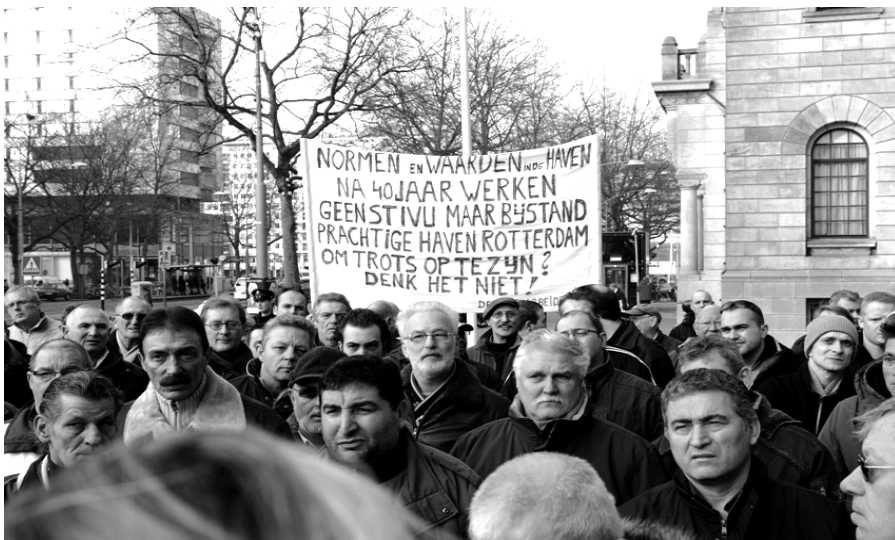 NORMEN EN WAARDEN IN DE HAVEN
NA 40 JAAR WERKEN
GEEN STIVU MAAR BIJSTAND
PRACHTIGE HAVEN ROTTERDAM
OM TROTS OP TE ZIJN?
DENK HET NIET!